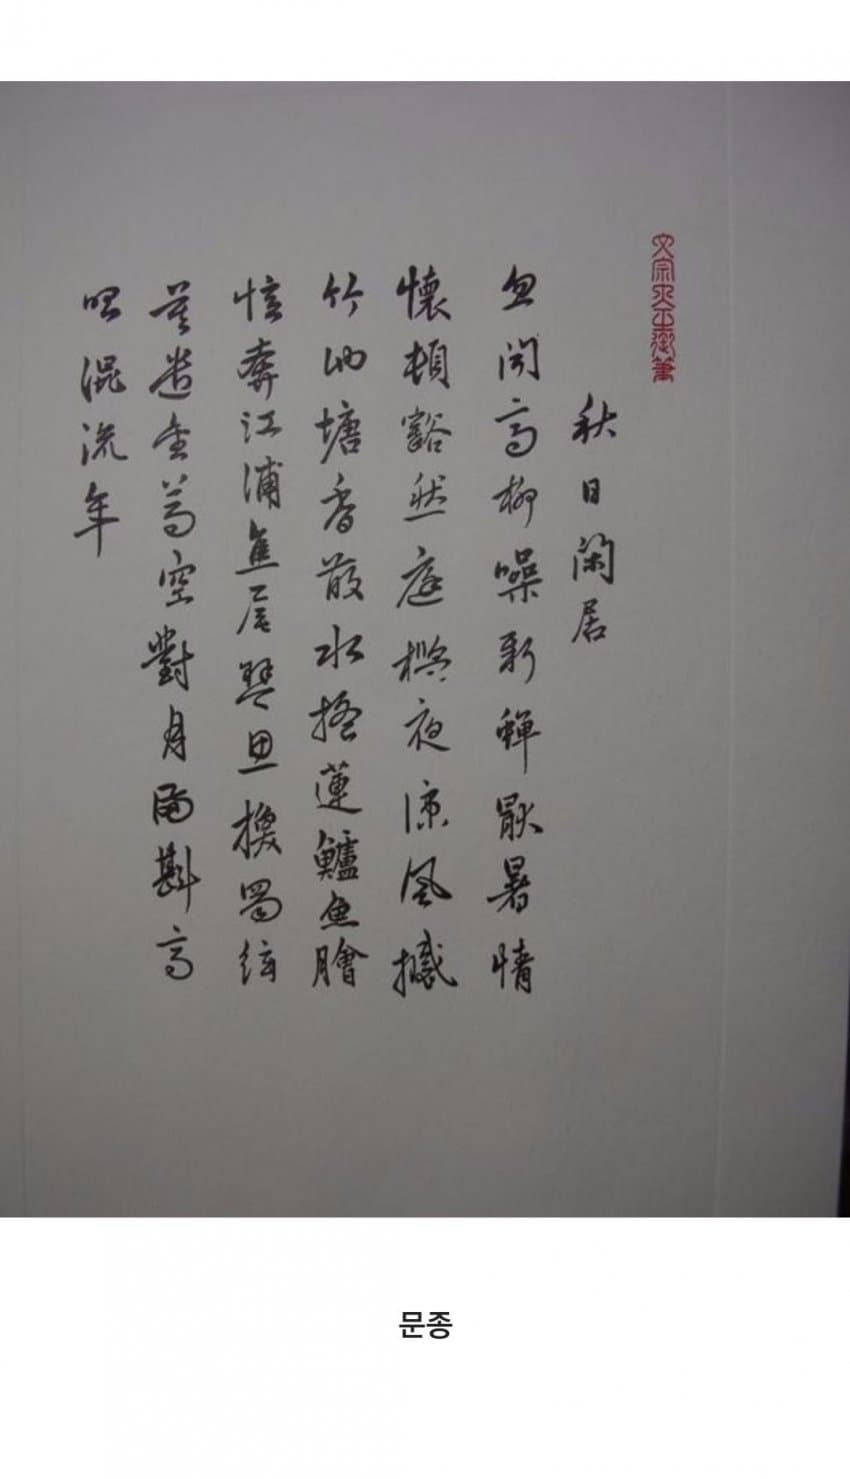 文宗大王御筆
秋日閑居
忽聞高柳噪新蟬厭暑情
懷頓豁然庭檻夜凉風撼
竹池塘香散水搖蓮鱸魚膾
憶奔江浦焦尾琴思換蜀絃
莫遣金尊空對月滿斟高
唱混流年
문종